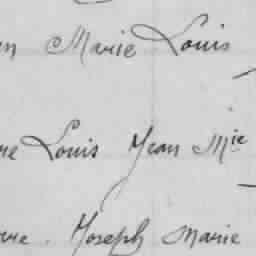 Marie Louis
Louis Jean Mie
Joseph Marie